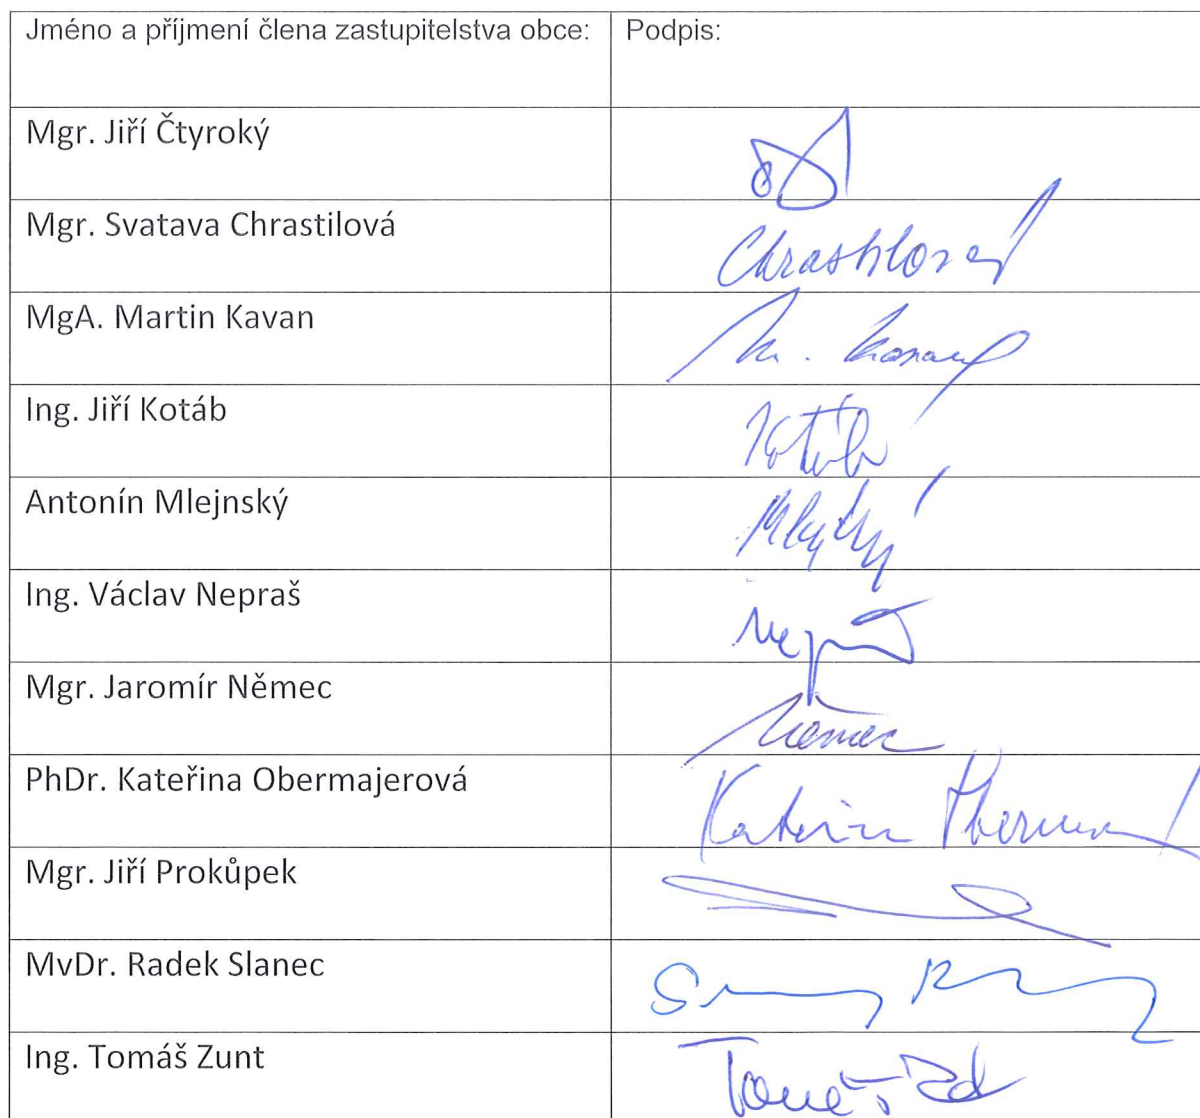 Jméno a příjmení člena zastupitelstva obce: Podpis:
Mgr. Jiří Čtyroký
Mgr. Svatava Chrastilová Chrastilová
MgA. Martin Kavan
Ing. Jiří Kotáb Kotáb
Antonín Mlejnský
Ing. Václav Nepraš
Mgr. Jaromír Němec Němec
PhDr. Kateřina Obermajerová
Mgr. Jiří Prokůpek
MvDr. Radek Slanec
Ing. Tomáš Zunt